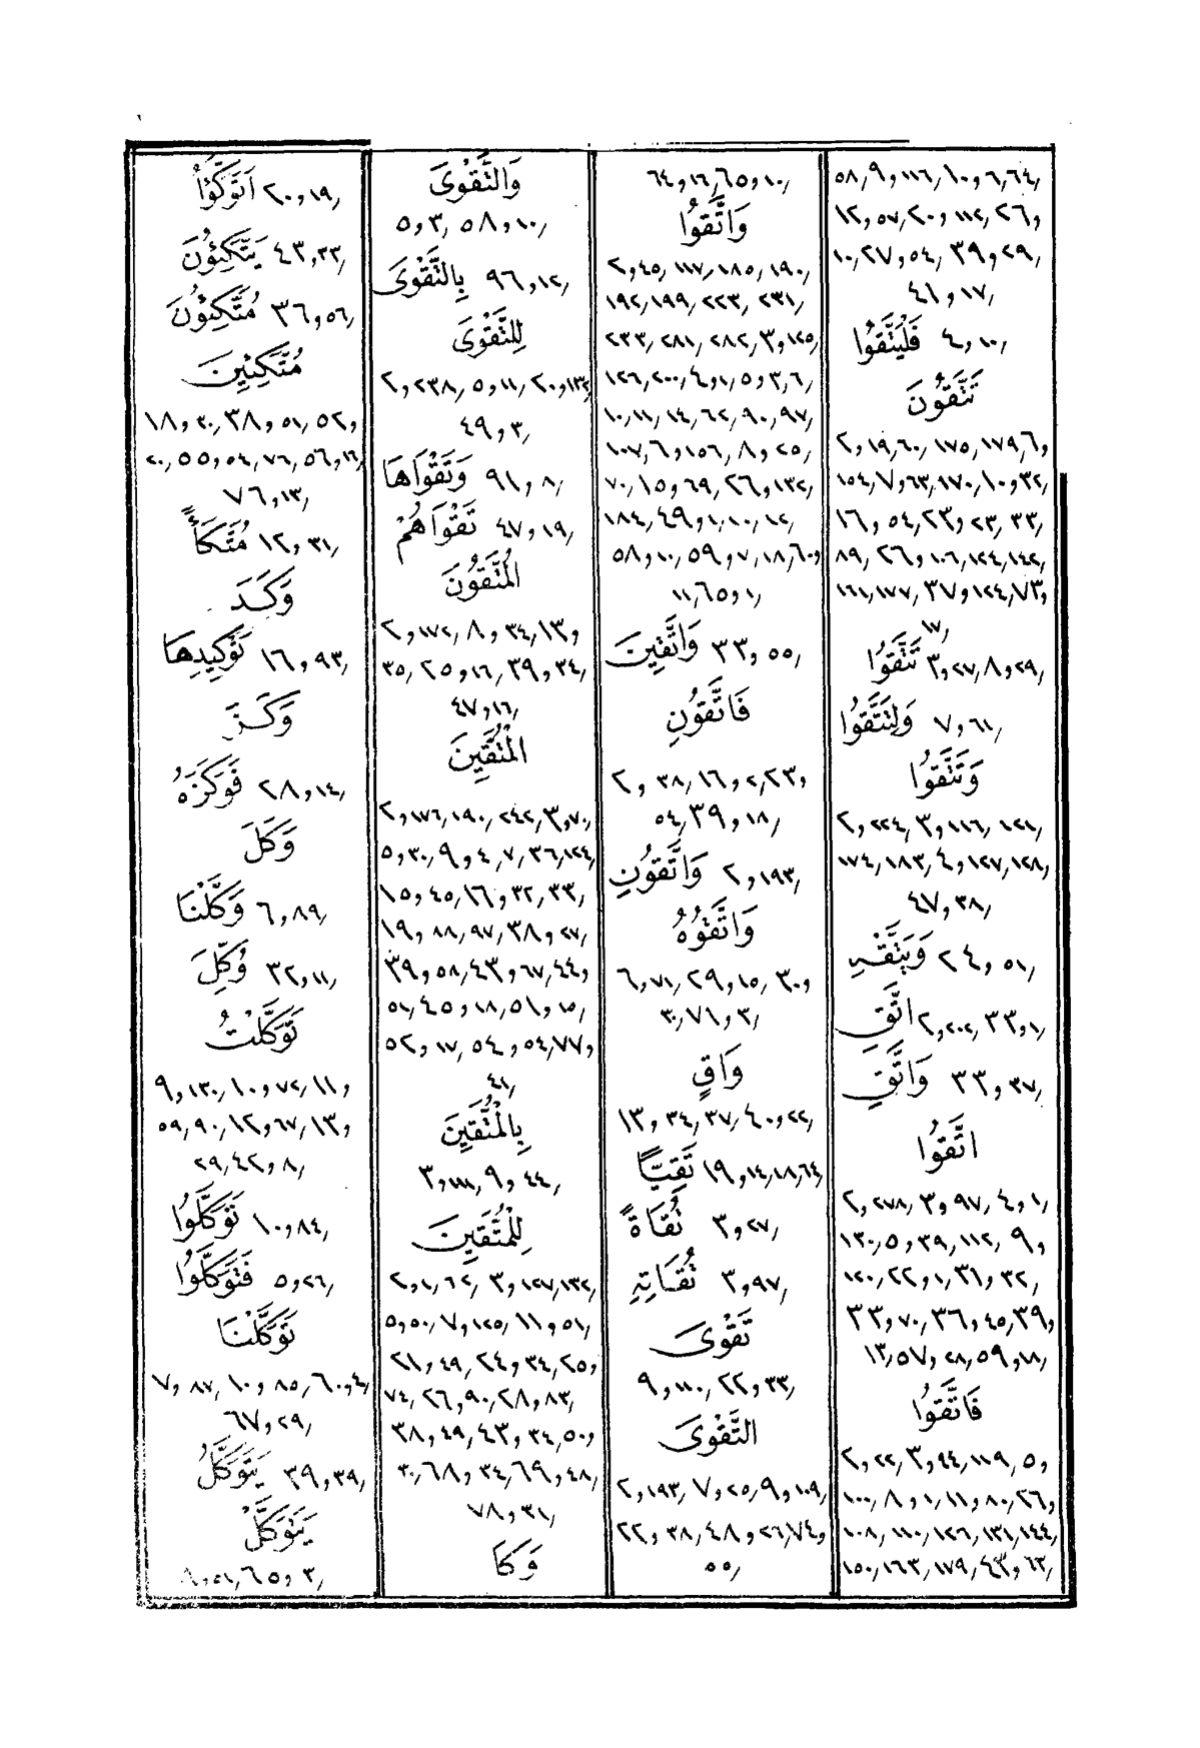 ٥٨/ ٩و ١١٦/ ١٠و ٦/ ٦٤/
١٢و ٥٧/ ٢٠و ١١٢/ ٢٦و
١٠/ ٢٧و ٥٤/ ٣٩و ٢٩/
٤١و ١٧/
فَلْيَتَّقُوا ٤و ١٠/
تَتَّقُونَ
٢و ١٩/ ٦٠/ ١٧٥/ ١٧٩/ ٦و
١٥٤/ ٧و ٦٣/ ١٧٠/ ١٠و ٣٢/
١٦و ٥٤/ ٢٣و ٢٣/ ٣٣/
٨٩/ ٢٦و ١٠٦/ ١٢٤/ ١٤٢/
١٦١/ ١٧٧/ ٣٧و ١٢٤/ ٧٣و
١٧/
تَتَّقُوا ٣و ٢٧/ ٨و ٢٩/
وَلِتَتَّقُوا ٧و ٦١/
وَتَتَّقُوا
٢و ٢٢٤/ ٣و ١١٦/ ١٢١/
١٧٤/ ١٨٣/ ٤و ١٢٧/ ١٢٨/
٤٧و ٣٨/
وَيَتَّقْهِ ٢٤و ٥١/
اتَّقِ ٢و ٢٠٢/ ٣٣و ١/
وَاتَّقِ ٣٣و ٣٧/
اتَّقُوا
٢و ٢٧٨/ ٣و ٩٧/ ٤و ١/
١٣٠/ ٥و ٣٩/ ١١٢/ ٩و
١٢٠/ ٢٢و ١/ ٣١و ٣٢/
٣٣و ٧٠/ ٣٦و ٤٥/ ٣٩و
١٣/ ٥٧و ٢٨/ ٥٩و ١٨/
فَاتَّقُوا
٢و ٢٢/ ٣و ٤٤/ ١١٩/ ٥و
١٠٠/ ٨و ١/ ١١و ٨٠/ ٢٦و
١٠٨/ ١١٠/ ١٢٦/ ١٣١/ ١٤٤/
١٥٠/ ١٦٣/ ١٧٩/ ٤٣و ٦٣/
٦٤و ١٦/ ٦٥و ١٠/
وَاتَّقُوا
٢و ٤٥/ ١١٧/ ١٨٥/ ١٩٠/
١٩٢/ ١٩٩/ ٢٢٣/ ٢٣١/
٢٣٣/ ٢٨١/ ٢٨٢/ ٣و ١٢٥/
١٢٦/ ٢٠٠/ ٤و ١/ ٥و ٣/ ٦/
١٠/ ١١/ ١٤/ ٦٢/ ٩٠/ ٩٧/
١٠٧/ ٦و ١٥٦/ ٨و ٢٥/
٧٠/ ١٥و ٦٩/ ٢٦و ١٣٢/
١٨٤/ ٤٩و ١/ ١٠/ ١٢/
٥٨و ١٠/ ٥٩و ٧/ ١٨/ ٦٠و
١١/ ٦٥و ١/
وَاتَّقِينَ ٣٣و ٥٥/
فَاتَّقُونِ
٢و ٣٨/ ١٦و ٢/ ٢٣و
٥٤/ ٣٩و ١٨/
وَاتَّقُونِ ٢و ١٩٣/
وَاتَّقُوهُ
٦و ٧١/ ٢٩و ١٥/ ٣٠و
٣٠/ ٧١و ٣/
وَاقٍ
١٣و ٣٤/ ٣٧/ ٤٠و ٢٢/
تَقِيًّا ١٩و ١٤/ ١٨/ ٦٤/
تُقَاةً ٣و ٢٧/
تُقَاتِهِ ٣و ٩٧/
تَقْوَى
٩و ١١٠/ ٢٢و ٣٣/
التَّقْوَى
٢و ١٩٣/ ٧و ٢٥/ ٩و ١٠٩/
٢٢و ٣٨/ ٤٨و ٢٦/ ٧٤و
٥٥/
وَالتَّقْوَى
٥و ٣/ ٥٨و ١٠/
بِالتَّقْوَى ٩٦و ١٢/
لِلتَّقْوَى
٢و ٢٣٨/ ٥و ١١/ ٢٠و ١٣٢/
٤٩و ٣/
وَتَقْوَاهَا ٩١و ٨/
تَقْوَاهُمْ ٤٧و ١٩/
الْمُتَّقُونَ
٢و ١٧٢/ ٨و ٣٤/ ١٣و
٣٥/ ٢٥و ١٦/ ٣٩و ٣٤/
٤٧و ١٦/
الْمُتَّقِينَ
٢و ١٧٦/ ١٩٠/ ٢٤٢/ ٣و ٧٠/
٥و ٣٠/ ٩و ٤/ ٧/ ٣٦/ ١٢٤/
١٥و ٤٥/ ١٦و ٣٢/ ٣٣/
١٩و ٨٨/ ٩٧/ ٣٨و ٢٧/
٣٩و ٥٨/ ٤٣و ٦٧/ ٤٤و
٥١/ ٤٥و ١٨/ ٥١و ١٥/
٥٢و ١٧/ ٥٤و ٥٤/ ٧٧و
٤١/
بِالْمُتَّقِينَ
٣و ١١١/ ٩و ٤٤/
لِلْمُتَّقِينَ
٢و ١/ ٦٢/ ٣و ١٢٧/ ١٣٢/
٥و ٥٠/ ٧و ١٢٥/ ١١و ٥١/
٢١و ٤٩/ ٢٤و ٣٤/ ٢٥و
٧٤/ ٢٦و ٩٠/ ٢٨و ٨٣/
٣٨و ٤٩/ ٤٣و ٣٤/ ٥٠و
٣٠/ ٦٨و ٣٤/ ٦٩و ٤٨/
٧٨و ٣١/
وَكَا
اَتَوَكَّؤُا ٢٠و ١٩/
يَتَّكِئُونَ ٤٣و ٣٣/
مُتَّكِئُونَ ٣٦و ٥٦/
مُتَّكِئِينَ
١٨و ٣٠/ ٣٨و ٥١/ ٥٢و
٢٠/ ٥٥و ٥٤/ ٧٦/ ٥٦و ١٦/
٧٦و ١٣/
مُتَّكَأً ١٢و ٣١/
وَكَدَ
تَوْكِيدِهَا ١٦و ٩٣/
وَكَزَ
فَوَكَزَهُ ٢٨و ١٤/
وَكَلَ
وَكَّلْنَا ٦و ٨٩/
وُكِّلَ ٣٢و ١١/
تَوَكَّلْتُ
٩و ١٣٠/ ١٠و ٧٢/ ١١و
٥٩/ ٩٠/ ١٢و ٦٧/ ١٣و
٢٩/ ٤٢و ٨/
تَوَكَّلُوا ١٠و ٨٤/
فَتَوَكَّلُوا ٥و ٢٦/
تَوَكَّلْنَا
٧و ٨٧/ ١٠و ٨٥/ ٦٠و ٤/
٦٧و ٢٩/
يَتَوَكَّلُ ٣٩و ٣٩/
يَتَوَكَّلْ
٨و ٥١/ ٦٥و ٣/